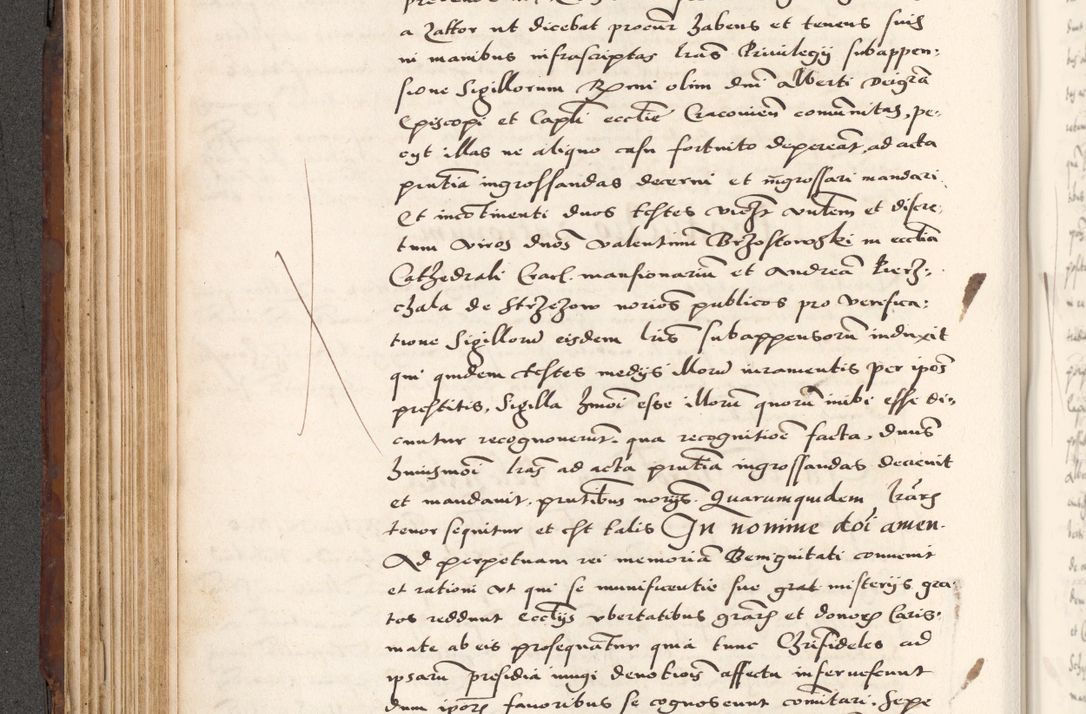 a Zattor ut dicebat procur habens et tenens suis
in manibus infrascriptas lras Privilegij subappen:
sione Sigillorum Rmi olim dni Alberti Dei gra
Episcopi et Capli ecclie Cracovien comunitas, pe:
cyt illas ne aliquo casu fortuito depereat, ad acta
pntia ingrossandas decerni et ingrossari mandari.
Et incotinenti duos testes videlt venlem et discre:
tum viros dnos Valentinum Brzostowski in ecclia
Cathedrali Crac. mansionariu et Andrea Pierz:
chala de Strzezow norios publicos pro verifica:
tione Sigilloru eisdem lris subappensoru induxit
qui quidem testes medijs illoru iuramentis per ipos
prestitis, Sigilla hmoi esse illoru quoru inibi esse di:
cuntur recognoverunt. qua recognitioe facta, dnus
huiusmoi lras ad acta pntia ingrossandas decrevit
et mandavit, pntibus norijs. Quarumquidem lrar
tenor sequitur et est talis In nomine doi amen.
Ad perpetuam rei memoria Benignitati convenit
et rationi ut qui se munificentie sue grat misterijs gra:
tos reddunt Ecclijs ubertatibus grar et donor Caris:
mate ab eis prosequatur quia tunc Chrifideles ad
ipsaru presidia iungi devotiois affectu infervescunt
dum ipor favoribus se cognoscunt comitari. Sepe